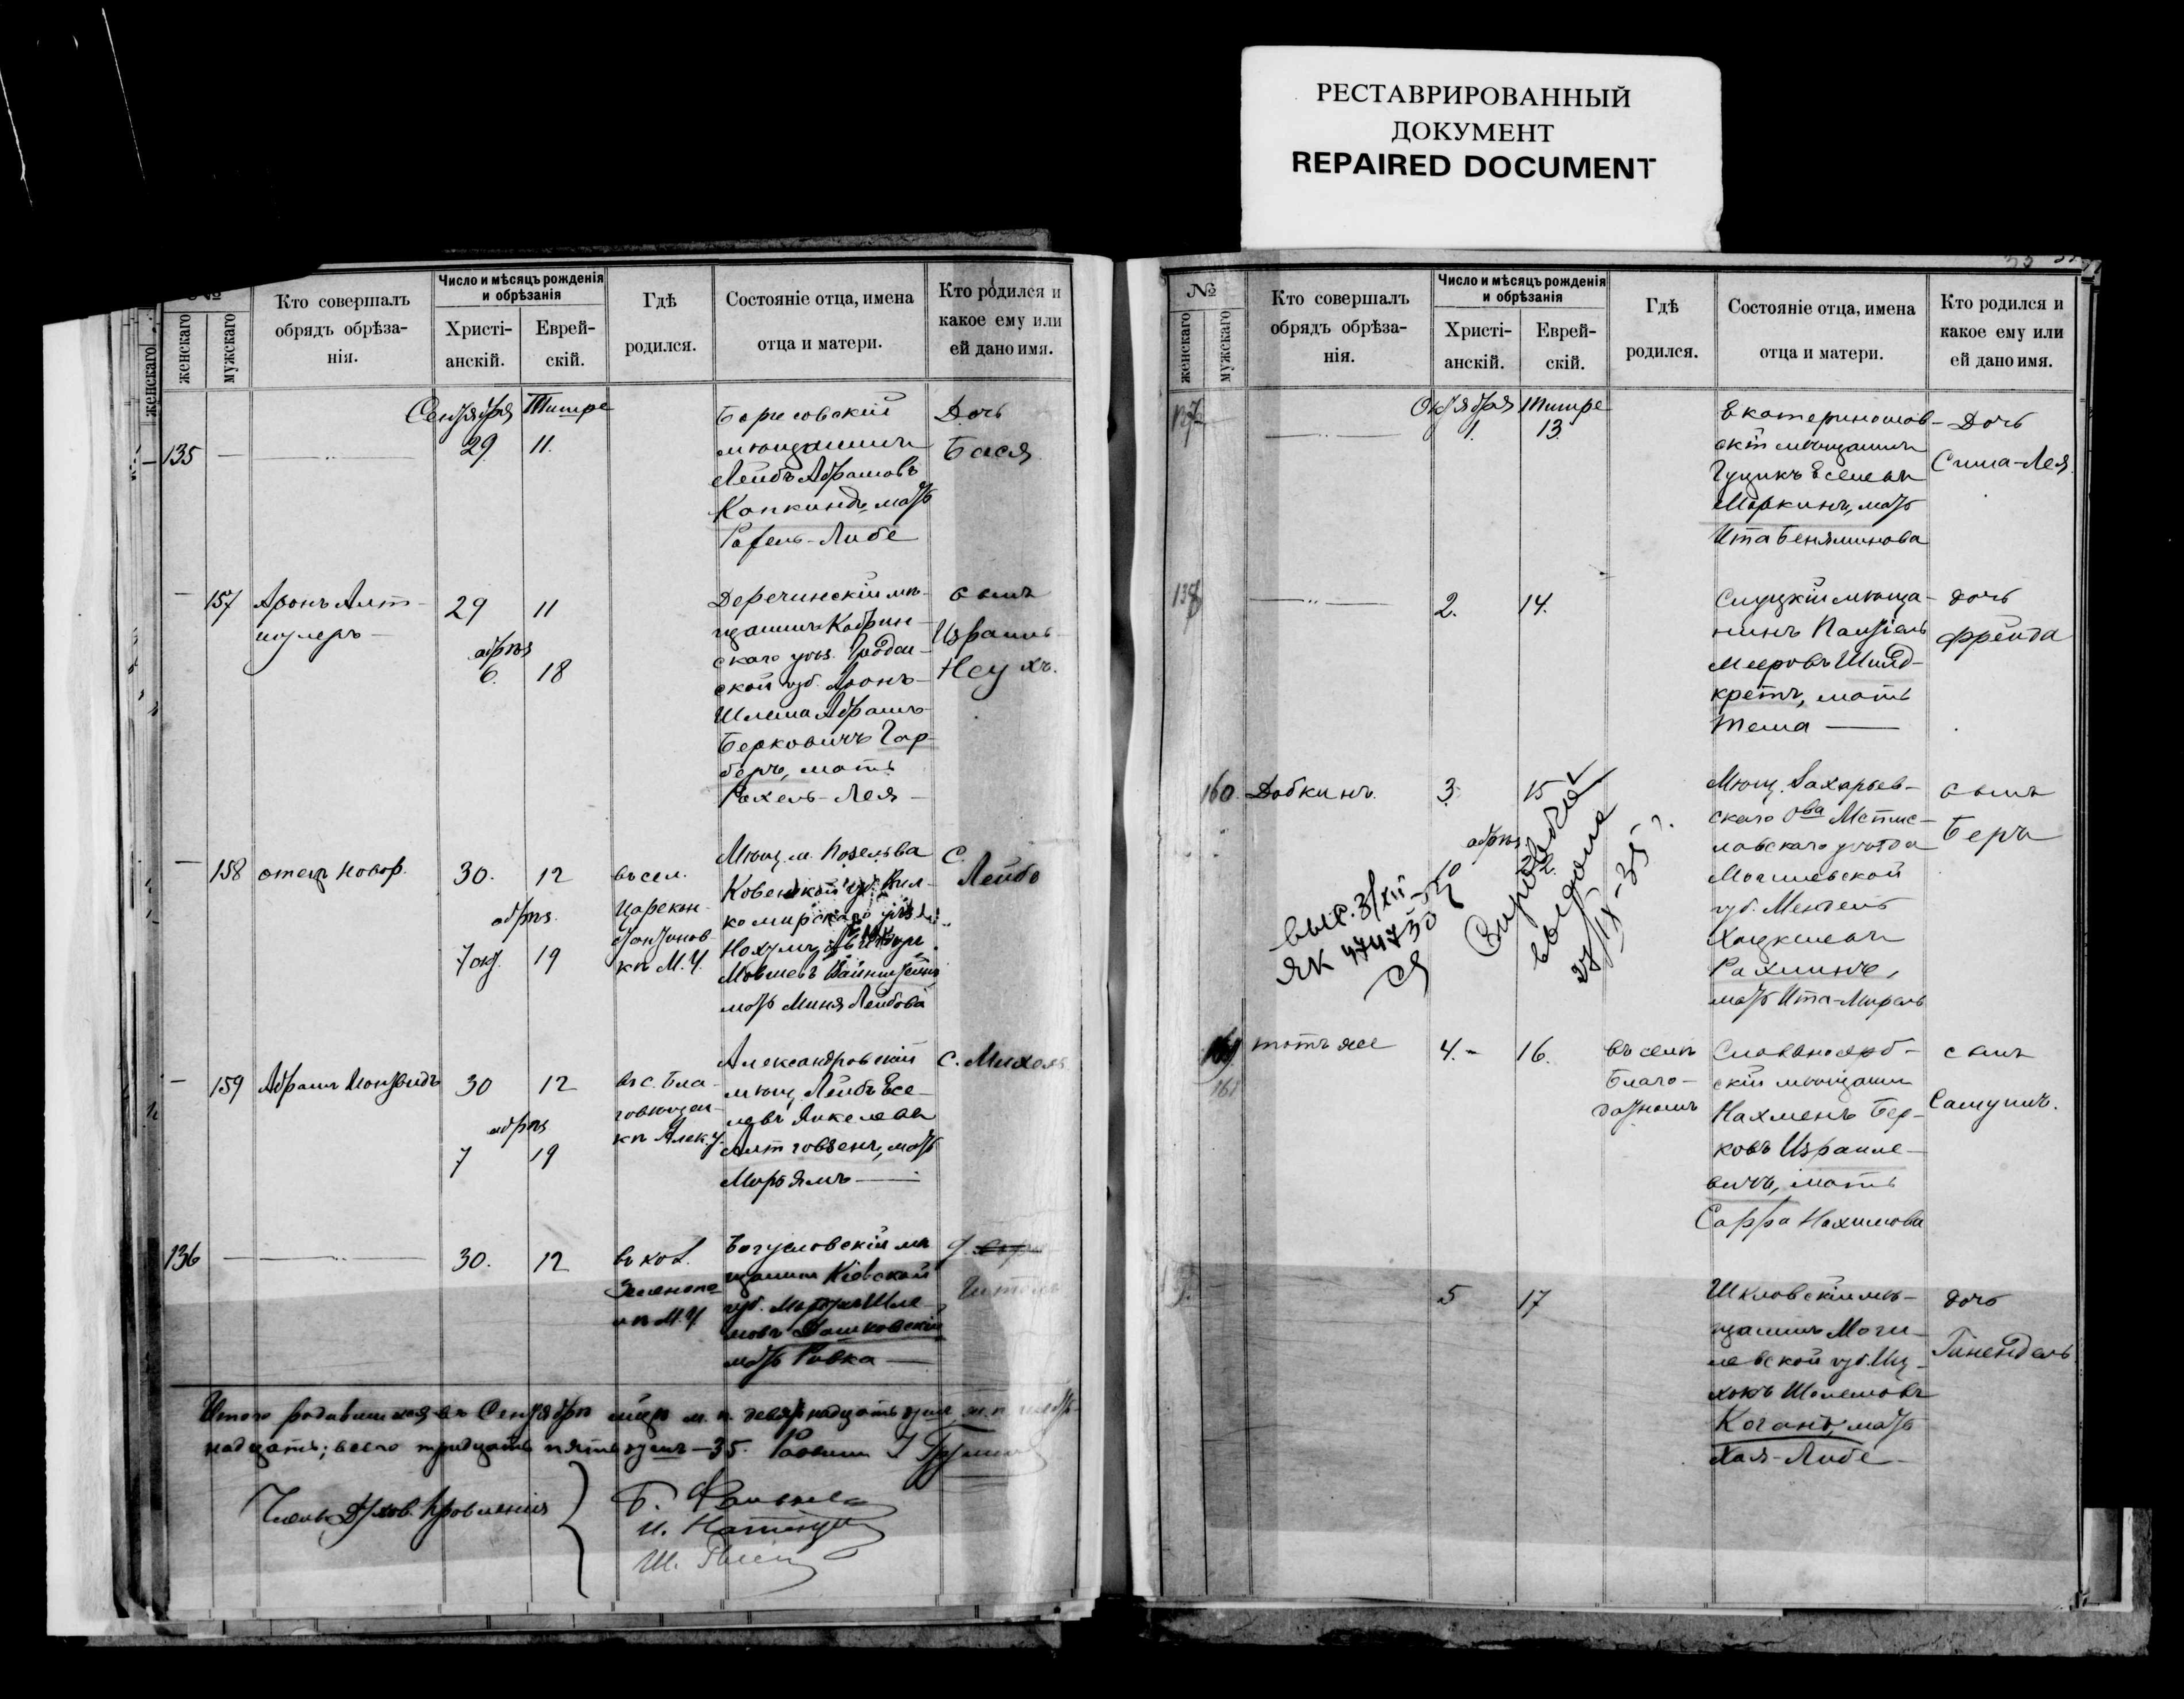 РЕСТАВРИРОВАННЫЙ
ДОКУМЕНТ
REPAIRED DOCUMENT
женскаго
№
женскаго
мужскаго
Кто совершалъ
обрядъ обрѣза-
нія.
Число и мѣсяцъ рожденія
и обрѣзанія
Христі-
анскій.
Еврей-
скій.
Гдѣ
родился.
Состояніе отца, имена
отца и матери.
Кто родился и
какое ему или
ей дано имя.
Сентября Тишре
135 29 11.
Борисовскій
мѣщанинъ
Лейбъ Абрамовъ
Копкиндъ, мать
Рахель-Либе
Дочь
Бася
157 Аронъ Альт-
шулеръ
29 11
обрѣз
6. 18
Деречинскій мѣ-
щанинъ Кобрин-
скаго уѣз. Гроднен-
ской губ. Аронъ-
Шлема Абрамъ-
Берковичъ Гар-
беръ, мать
Рахель-Лея
сынъ
Израиль-
Неухъ.
158 отецъ новор.
30. 12
обрѣз.
7 окт. 19
въ сел.
Царекон-
стантинов-
кѣ М.У.
Мѣщ. м.
Ковенской губ. Вил-
комирскаго уѣз.
Мовшевъ
мать Миня Лейбова
С.
Лейбо
159 Абрамъ
30 12
обрѣз
7 19
въ с. Бла-
говѣщен-
кѣ Алек. у.
Александровскій
мѣщ. Лейбъ Есе-
левъ Янкелевъ
Альтговзенъ, мать
Марьямъ
С. Михель
136 30. 12
въ кол.
Зеленопо-
лѣ М.У.
Богуславскій мѣ
щанинъ Кіевской
губ. Мордухъ Шле-
мовъ Дашковскій
мать Ривка
д.
Гитель
Итого родившихся въ Сентябрѣ мѣсц. м. п. девятнадцать душ, ж. п. шест-
надцать; всего тридцать пять душъ – 35. Раввинъ
Члены Духов. Правленія
Б.
И.
Ш.
№
женскаго
мужскаго
Кто совершалъ
обрядъ обрѣза-
нія.
Число и мѣсяцъ рожденія
и обрѣзанія
Христі-
анскій.
Еврей-
скій.
Гдѣ
родился.
Состояніе отца, имена
отца и матери.
Кто родился и
какое ему или
ей дано имя.
Октября Тишре
137 1. 13.
Екатеринослав-
скій мѣщанинъ
Еселевъ
Меркинъ, мать
Ита Беняминова
Дочь
Сима-Лея.
138 2. 14.
Слуцкій мѣща-
нинъ
Мееровъ Шильд-
кретъ, мать
Тема
дочь
Фрейда
160. Добкинъ.
3. 15
обрѣз.
10 22
Мѣщ. Захарьев-
скаго о-ва Мстис-
лавскаго уѣзда
Могилевской
губ. Мендель
Хацкелевъ
Рахлинъ,
мать Ита-Мирель
сынъ
Беръ
вып. 3/XII-
ЯК 474730
Справка
выдана
IX-35 г.
161 тотъ же
4.- 16.
въ селѣ
Благо-
датномъ
Славяносерб-
скій мѣщанин
Нахменъ Бер-
ковъ Израиле-
вичъ, мать
Сарра Нахимова
сынъ
Самуилъ.
5 17
Шкловскій мѣ-
щанинъ Моги-
левской губ. Иц-
хокъ Шолемовъ
Коганъ, мать
Хая-Либе
дочь
Гинендель